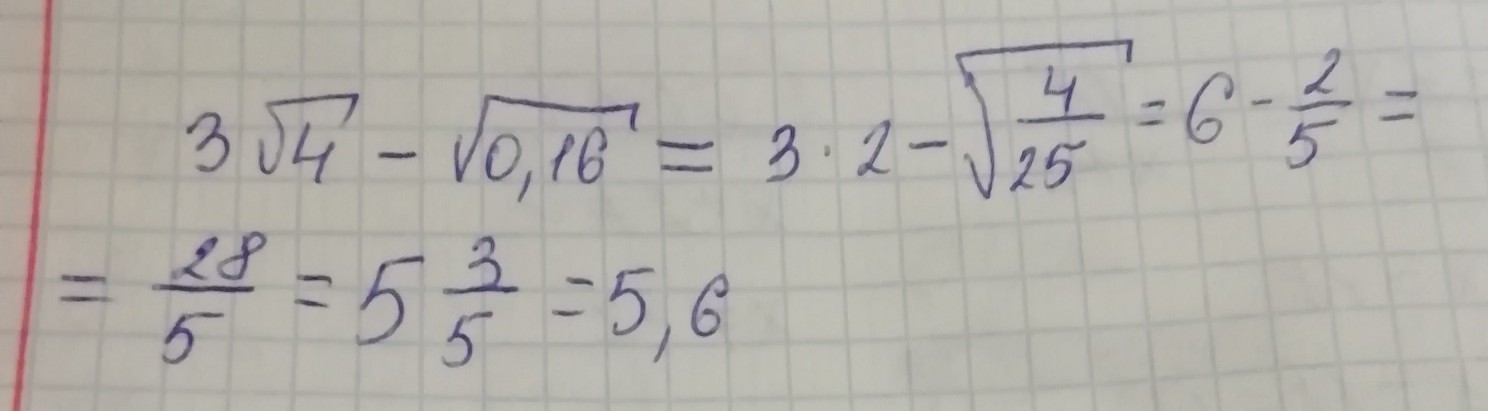 3√4 - √0,16 = 3 · 2 - √(4/25) = 6 - 2/5 =
= 28/5 = 5 3/5 = 5,6